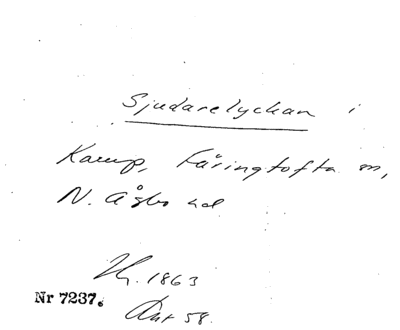 Sjudarelyckan i
Karup, Fåringtofta sn,
N. Åsbo hd
Hy. 1863
Nr 7237.
Ant 58.